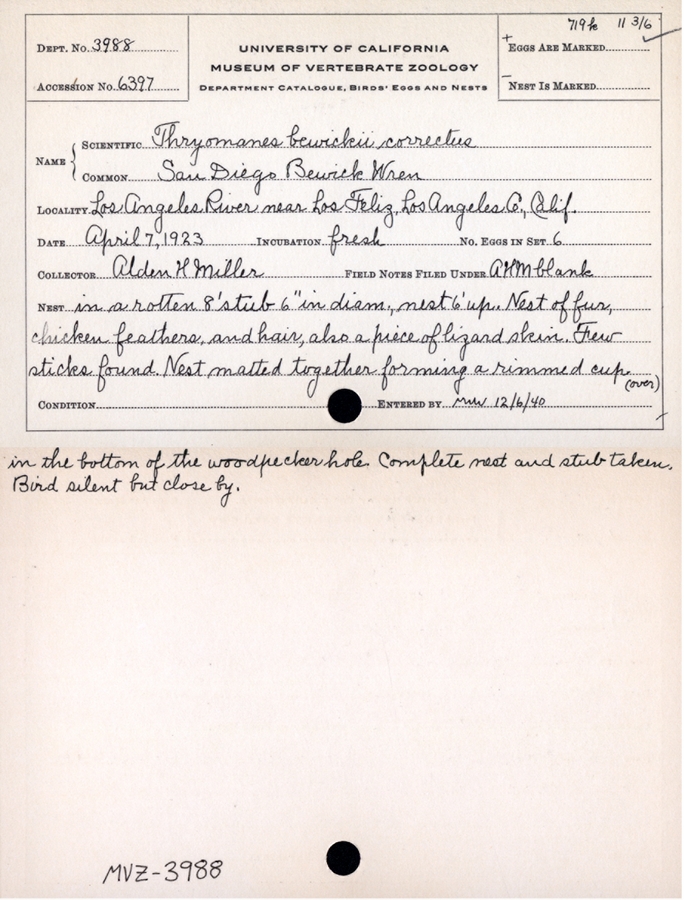 719k 11 3/6
DEPT. No. 3988
ACCESSION No. 6397
UNIVERSITY OF CALIFORNIA
MUSEUM OF VERTEBRATE ZOOLOGY
DEPARTMENT CATALOGUE, BIRDS' EGGS AND NESTS
+ EGGS ARE MARKED
– NEST IS MARKED
NAME
SCIENTIFIC Thryomanes bewickii correctus
COMMON San Diego Bewick Wren
LOCALITY Los Angeles River near Los Feliz, Los Angeles Co., Calif.
DATE April 7, 1923 INCUBATION fresh No. EGGS IN SET 6
COLLECTOR Alden H Miller FIELD NOTES FILED UNDER AHM blank
NEST in a rotten 8' stub 6" in diam., nest 6' up. Nest of fur,
chicken feathers, and hair, also a piece of lizard skin. Few
sticks found. Nest matted together forming a rimmed cup
(over)
CONDITION ENTERED BY 12/6/40
in the bottom of the woodpecker hole. Complete nest and stub taken.
Bird silent but close by.
MVZ-3988